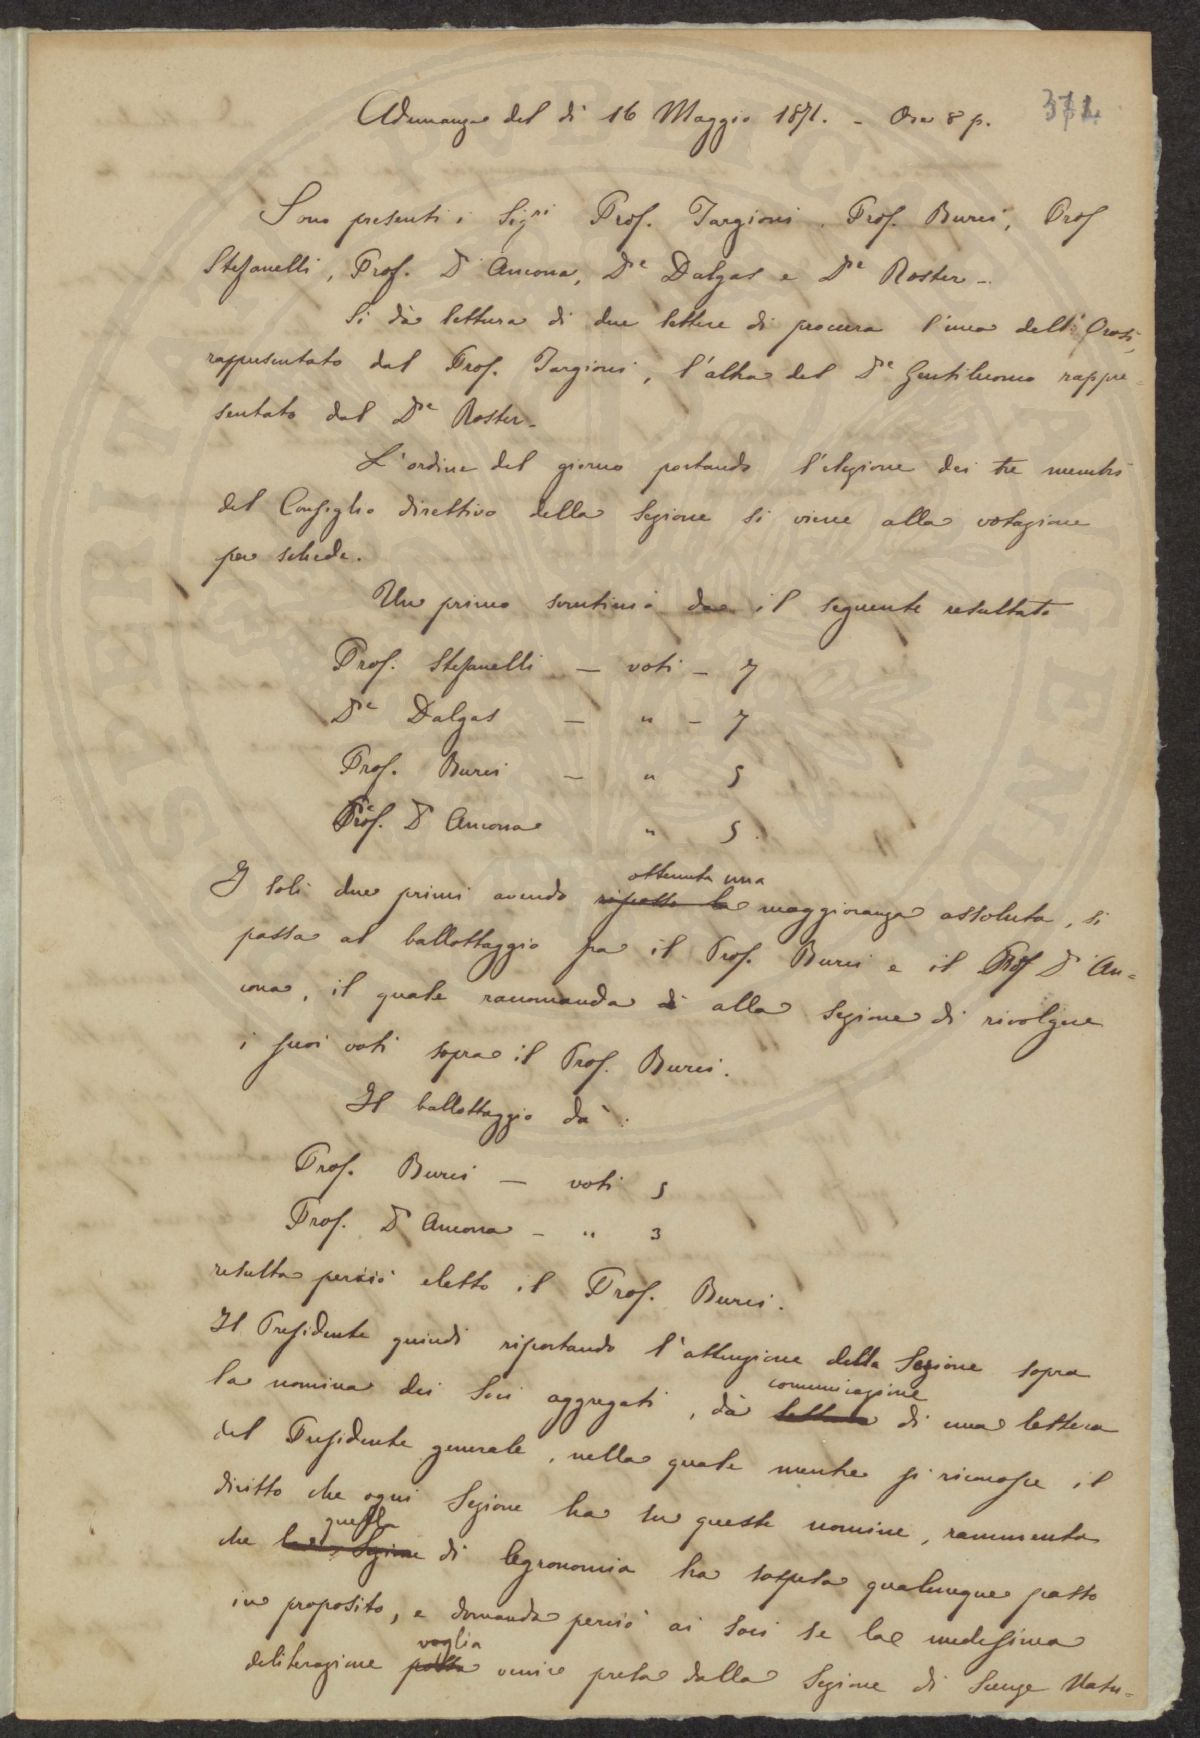 Adunanza del dì 16 Maggio 1871. - Ore 8 p.
Sono presenti i Sigri Prof. Targioni, Prof. Burci, Prof
Stefanelli, Prof. D'Ancona, Dre Dalgas e Dre Roster -
Si dà lettura di due lettere di procura l'una dell'
rappresentato dal Prof. Targioni, l'altra del Dre Gentiluomo rappre-
sentato dal Dre Roster -
L'ordine del giorno portando l'elezione dei tre membri
del Consiglio direttivo della Sezione si viene alla votazione
per schede.
Un primo scrutinio da il seguente resultato
Prof. Stefanelli — voti - 7
Dre Dalgas — " - 7
Prof. Burci — " 5
Prof. D'Ancona " 5.
ottenuta una
I soli due primi avendo maggioranza assoluta, si
passa al ballottaggio fra il Prof. Burci e il Prof D'An-
cona, il quale raccomanda alla Sezione di rivolgere
i suoi voti sopra il Prof. Burci.
Il ballottaggio dà:
Prof. Burci — voti 5
Prof. D'Ancona - " 3
resulta perciò eletto il Prof. Burci.
Il Presidente quindi riportando l'attenzione della Sezione sopra
comunicazione
la nomina dei Soci aggregati, dà lettura di una lettera
del Presidente generale, nella quale mentre si riconosce il
diritto che ogni Sezione ha su queste nomine, rammenta
quella
che la Sezione di Agronomia ha sospeso qualunque passo
in proposito, e domanda perciò ai soci se la medesima
voglia
deliberazione possa venire presa dalla Sezione di Scienze Natu-